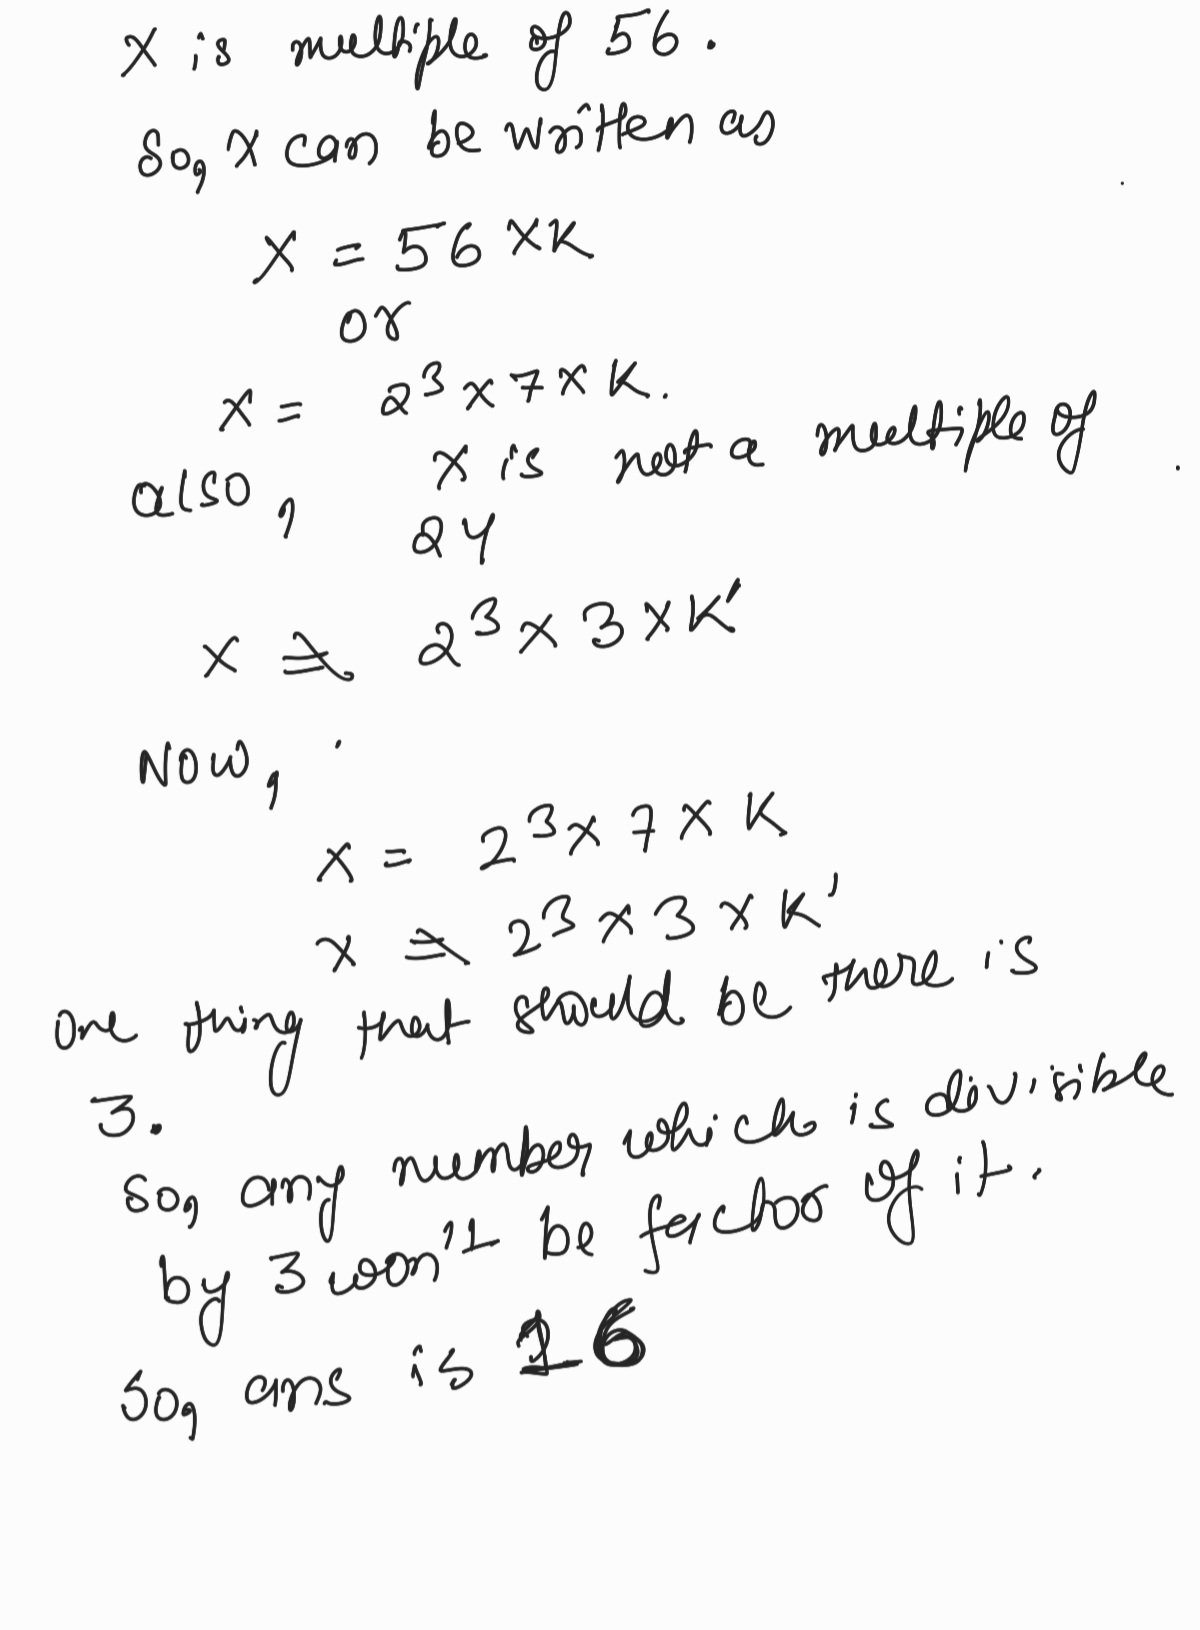 X is multiple of 56.
So, X can be written as
X = 56 × K
or
X = 2³ × 7 × K.
also, X is not a multiple of
24
X ≠ 2³ × 3 × K'
Now,
X = 2³ × 7 × K
X ≠ 2³ × 3 × K'
one thing that should be there is
3.
So, any number which is divisible
by 3 won't be factor of it.
So, ans is 16